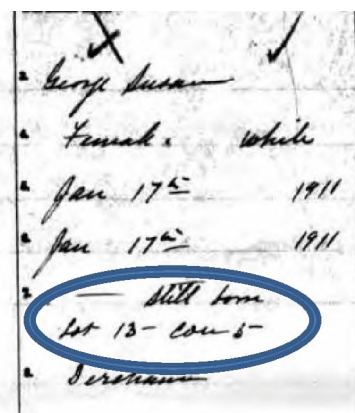 George Susan
Female. white
Jan 17th 1911
Jan 17th 1911
— Still born
Lot 13 - Con 5-
Dereham